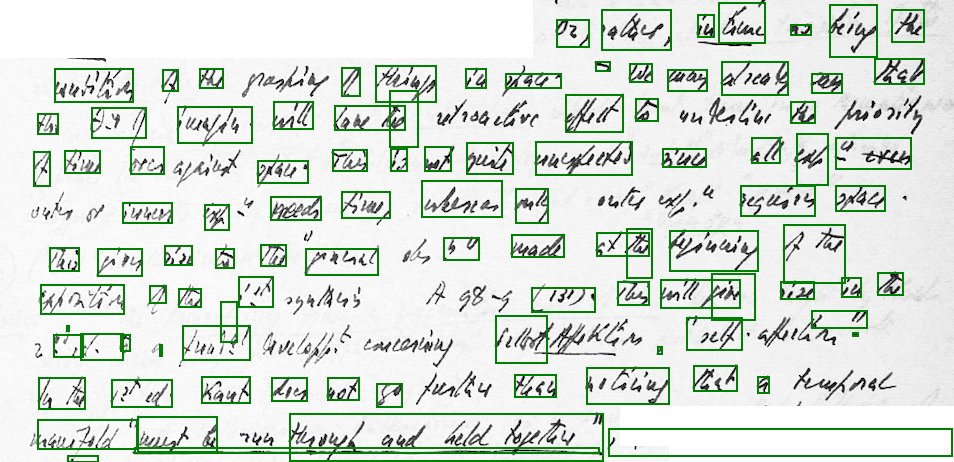 Or, rather, in time as being the
condition of the grasping of things in space. We may already say that
this D. of imagin. will have the retroactive effect to underline the priority
of time over against space. This is not quite unexpected since all exp.
outer or inner exp. needs time, whereas only outer exp. requires space.
This gives rise to the "general obs" made at the beginning of the
exposition of the 1st synthesis A 98-9 (131). This will give rise in the
2nd ed. to a fundtal developpt concerning Selbst Affektion, "self-affection"
In the 1st ed. Kant does not go further than noticing that a temporal
manifold "must be run through and held together".